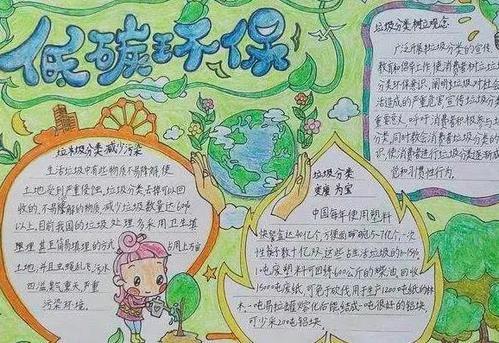 低碳环保
垃圾分类 树立观念
广泛开展垃圾分类的宣传
教育和倡导工作,使消费者树立垃圾
分类环保意识,阐明垃圾对社会
活造成的严重危害,宣传垃圾分类
重要意义,呼吁消费者积极参与
分类,同时教会消费者垃圾分类的
识,使消费者进行垃圾分类逐渐
觉和习惯性行为。
垃圾分类 减少污染
生活垃圾中有些物质不易降解,使
土地受到严重侵蚀。垃圾分类去掉可以回
收的、不易降解的物质,减少垃圾数量达60%
以上。目前我国的垃圾处理多采用卫生填
埋甚至简易填埋的方式,占用上万亩
土地,并且虫蝇乱飞,污水
四溢,臭气熏天,严重
污染环境。
垃圾分类
变废为宝
中国每年使用塑料
快餐盒达40亿个,方便面碗5-7亿个,一次
性筷子数十亿双,这些占生活垃圾的8-15%。
1吨废塑料可回炼600公斤的柴油,回收
1500吨废纸,可免于砍伐用于生产1200吨纸的林
木。一吨易拉罐熔化后能结成一吨很好的铝块,
可少采20吨铝矿。